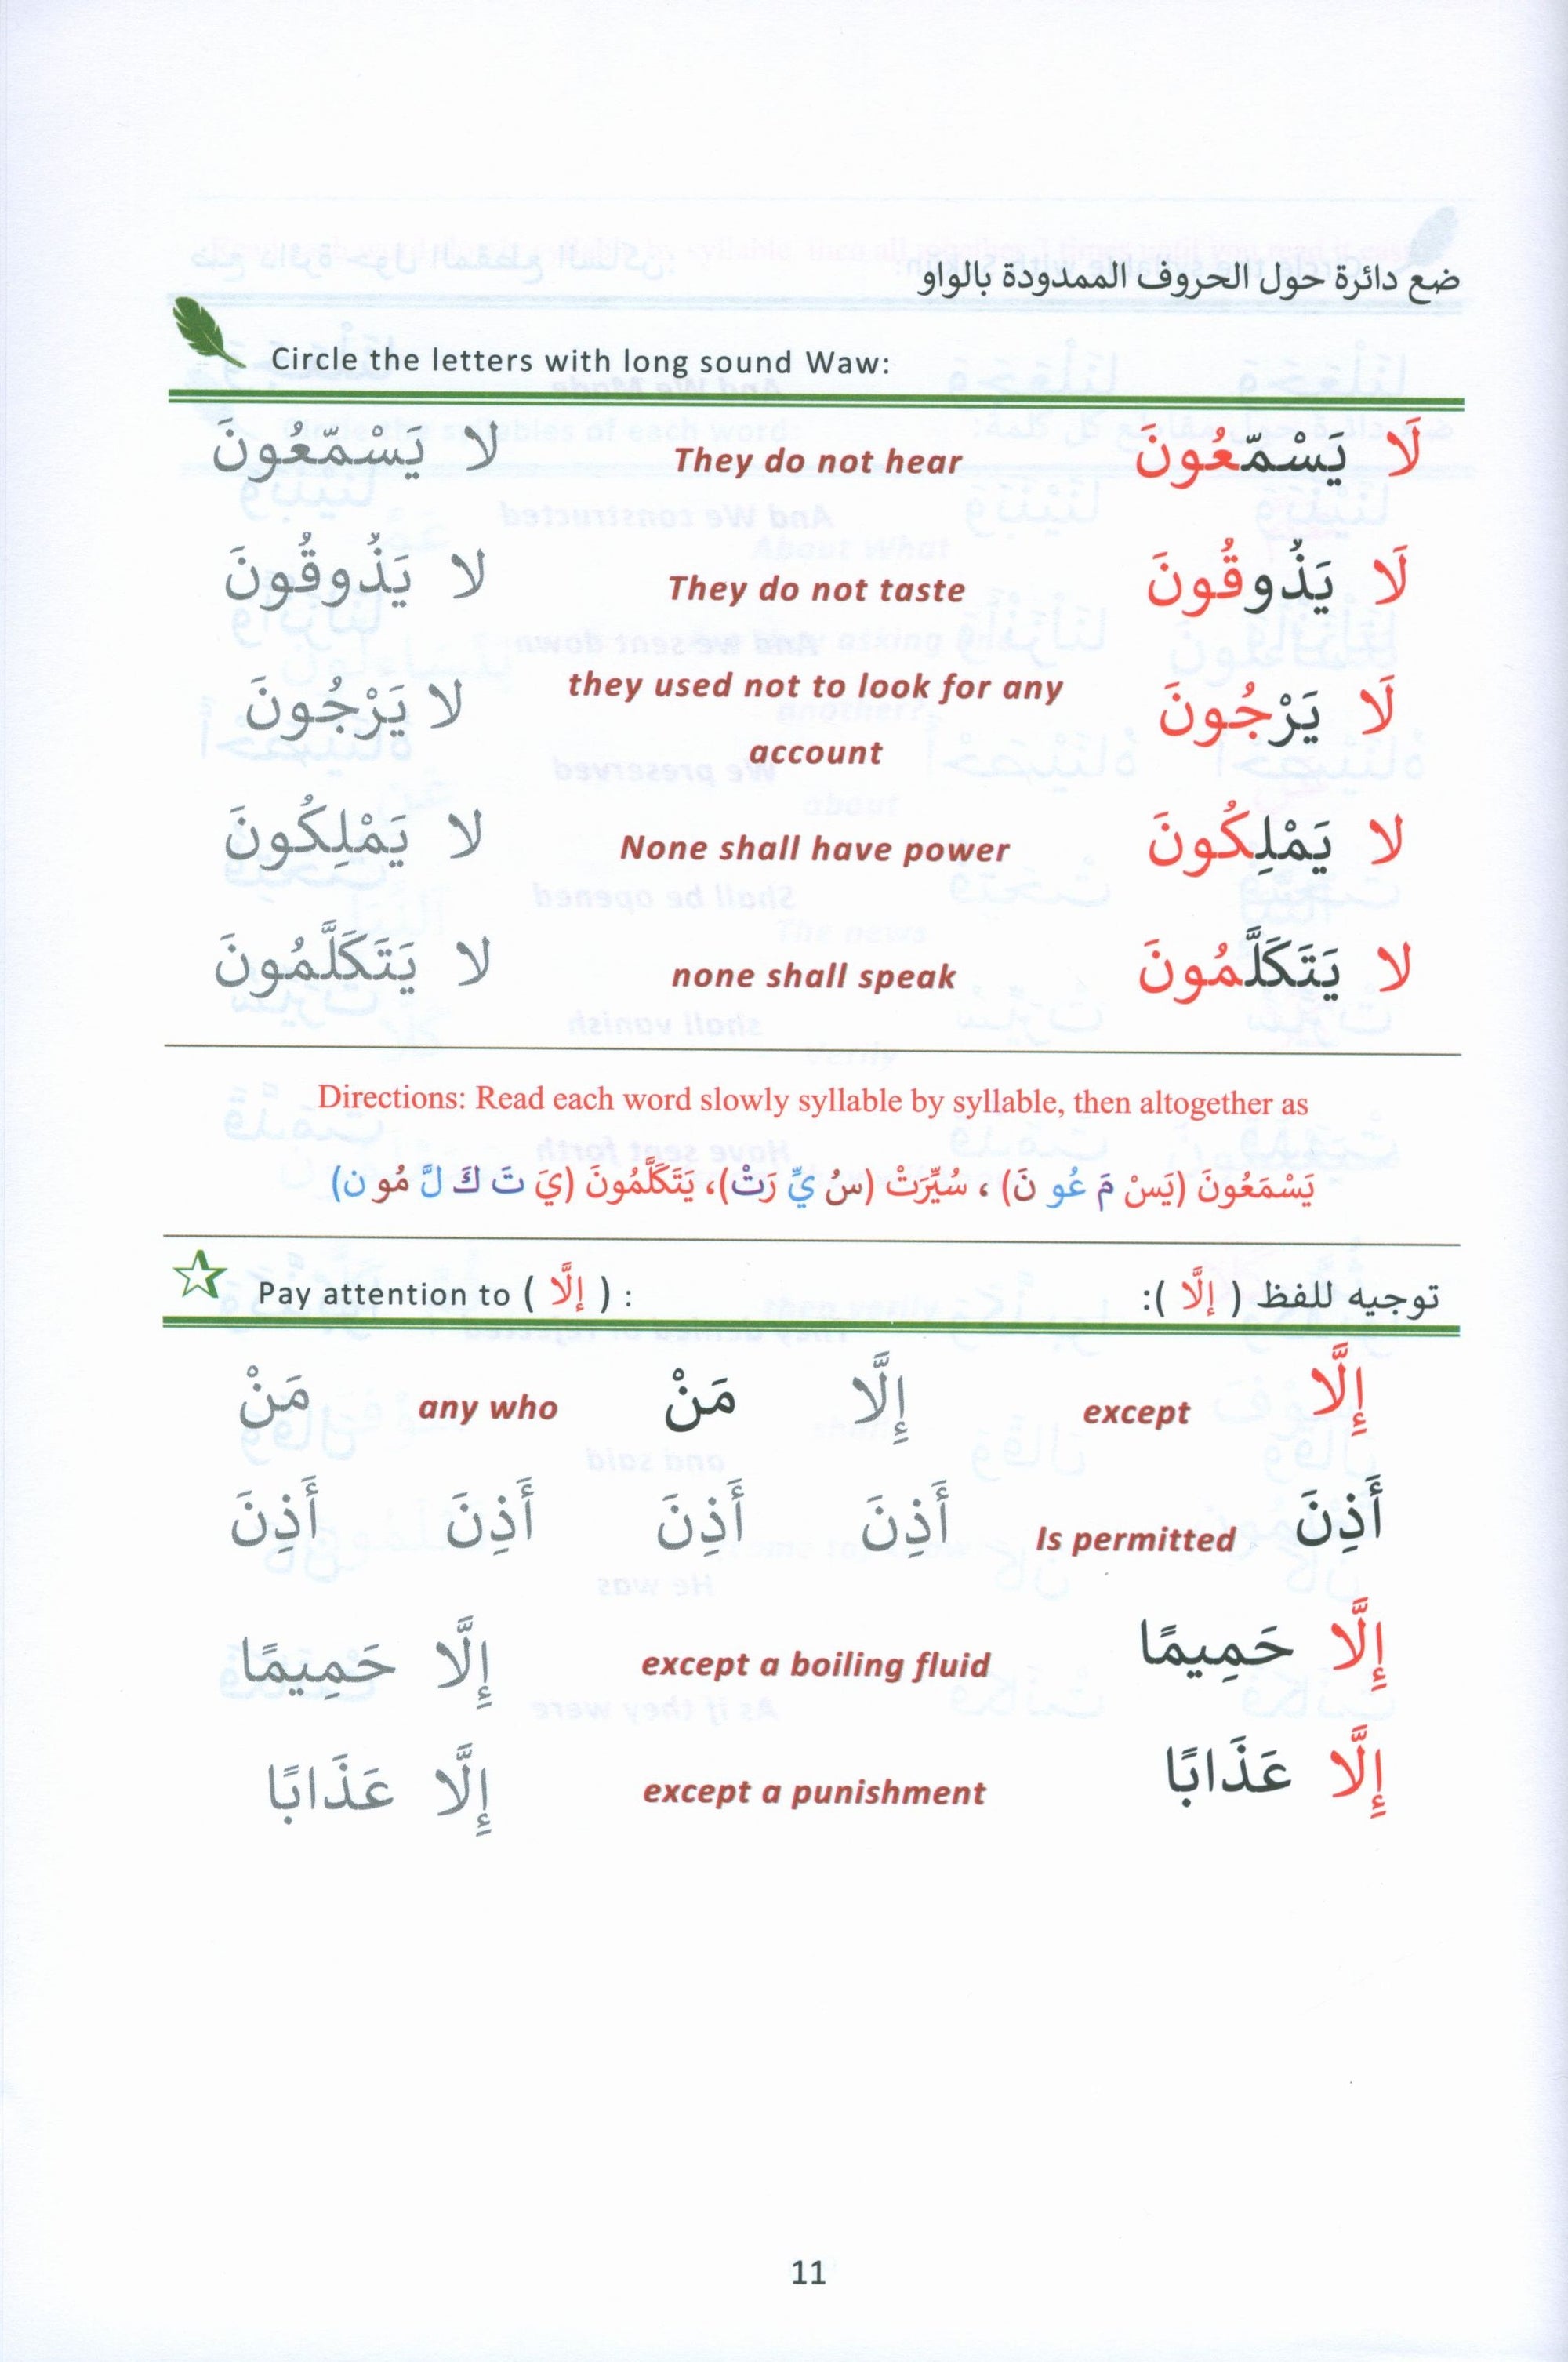 ضع دائرة حول الحروف الممدودة بالواو
Circle the letters with long sound Waw:
لَا يَسْمّعُونَ They do not hear لا يَسْمّعُونَ
لَا يَذُوقُونَ They do not taste لا يَذُوقُونَ
لَا يَرْجُونَ they used not to look for any account لا يَرْجُونَ
لا يَمْلِكُونَ None shall have power لا يَمْلِكُونَ
لا يَتَكَلَّمُونَ none shall speak لا يَتَكَلَّمُونَ
Directions: Read each word slowly syllable by syllable, then altogether as
يَسْمَعُونَ (يَسْ مَ عُو نَ) ، سُيِّرَتْ (سُ يِّ رَتْ)، يَتَكَلَّمُونَ (يَ تَ كَ لَّ مُو ن)
توجيه للفظ ( إلَّا ):
Pay attention to ( إلَّا ) :
إِلَّا except إِلَّا مَنْ any who مَنْ
أَذِنَ Is permitted أَذِنَ أَذِنَ أَذِنَ أَذِنَ
إِلَّا حَمِيمًا except a boiling fluid إِلَّا حَمِيمًا
إِلَّا عَذَابًا except a punishment إِلَّا عَذَابًا
11